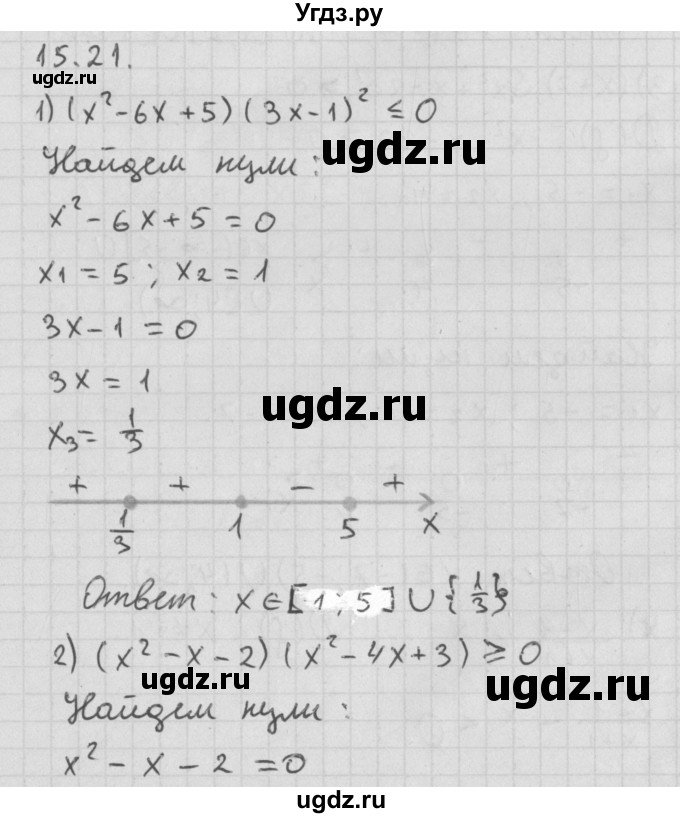 Угдз.ру
15.21.
ugdz.ru
1) (x²-6x+5)(3x-1)² ≤ 0
ugdz.ru
Найдем нули:
x² - 6x + 5 = 0
x₁ = 5 ; x₂ = 1
3x - 1 = 0
3x = 1
ugdz.ru
x₃ = 1/3
+ + - +
1/3 1 5 x
Ответ: x ∈ [1; 5] ∪ {1/3}
2) (x² - x - 2)(x² - 4x + 3) ≥ 0
ugdz.ru
ugdz.ru
Найдем нули:
x² - x - 2 = 0
ugdz.ru